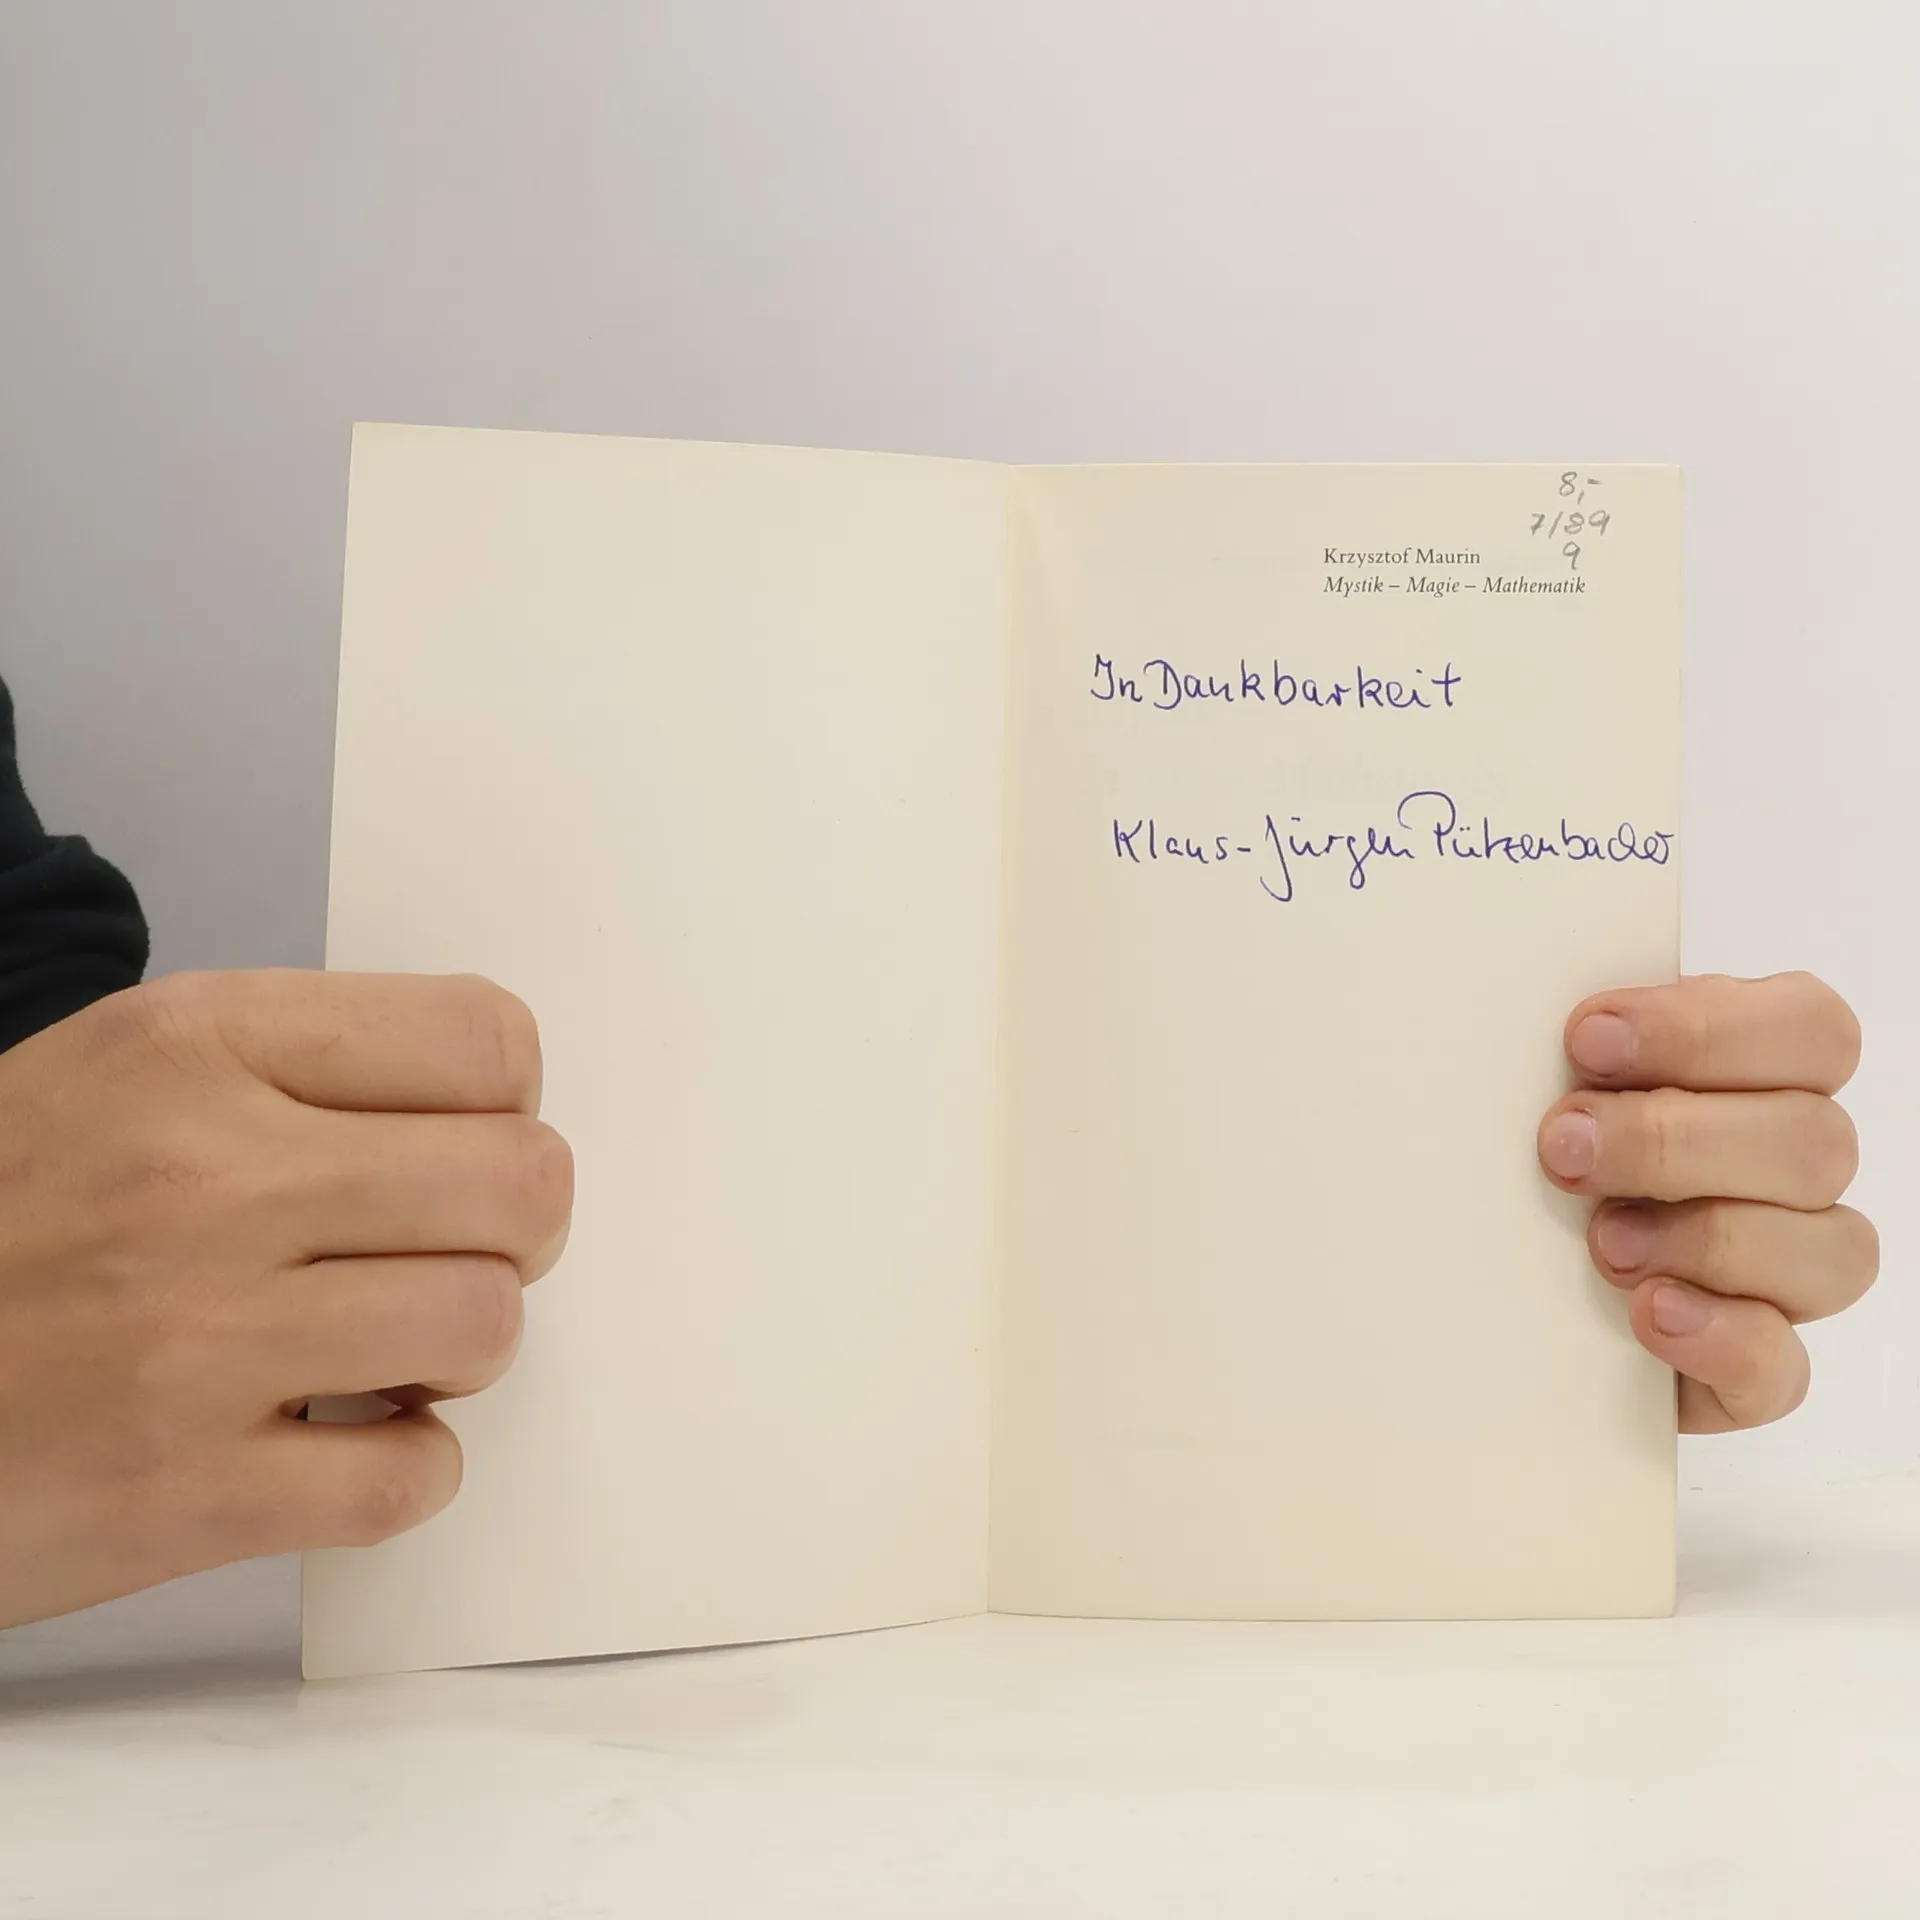 8,-
7/89
9
Krzysztof Maurin
Mystik – Magie – Mathematik
In Dankbarkeit
Klaus-Jürgen Pützenbacher